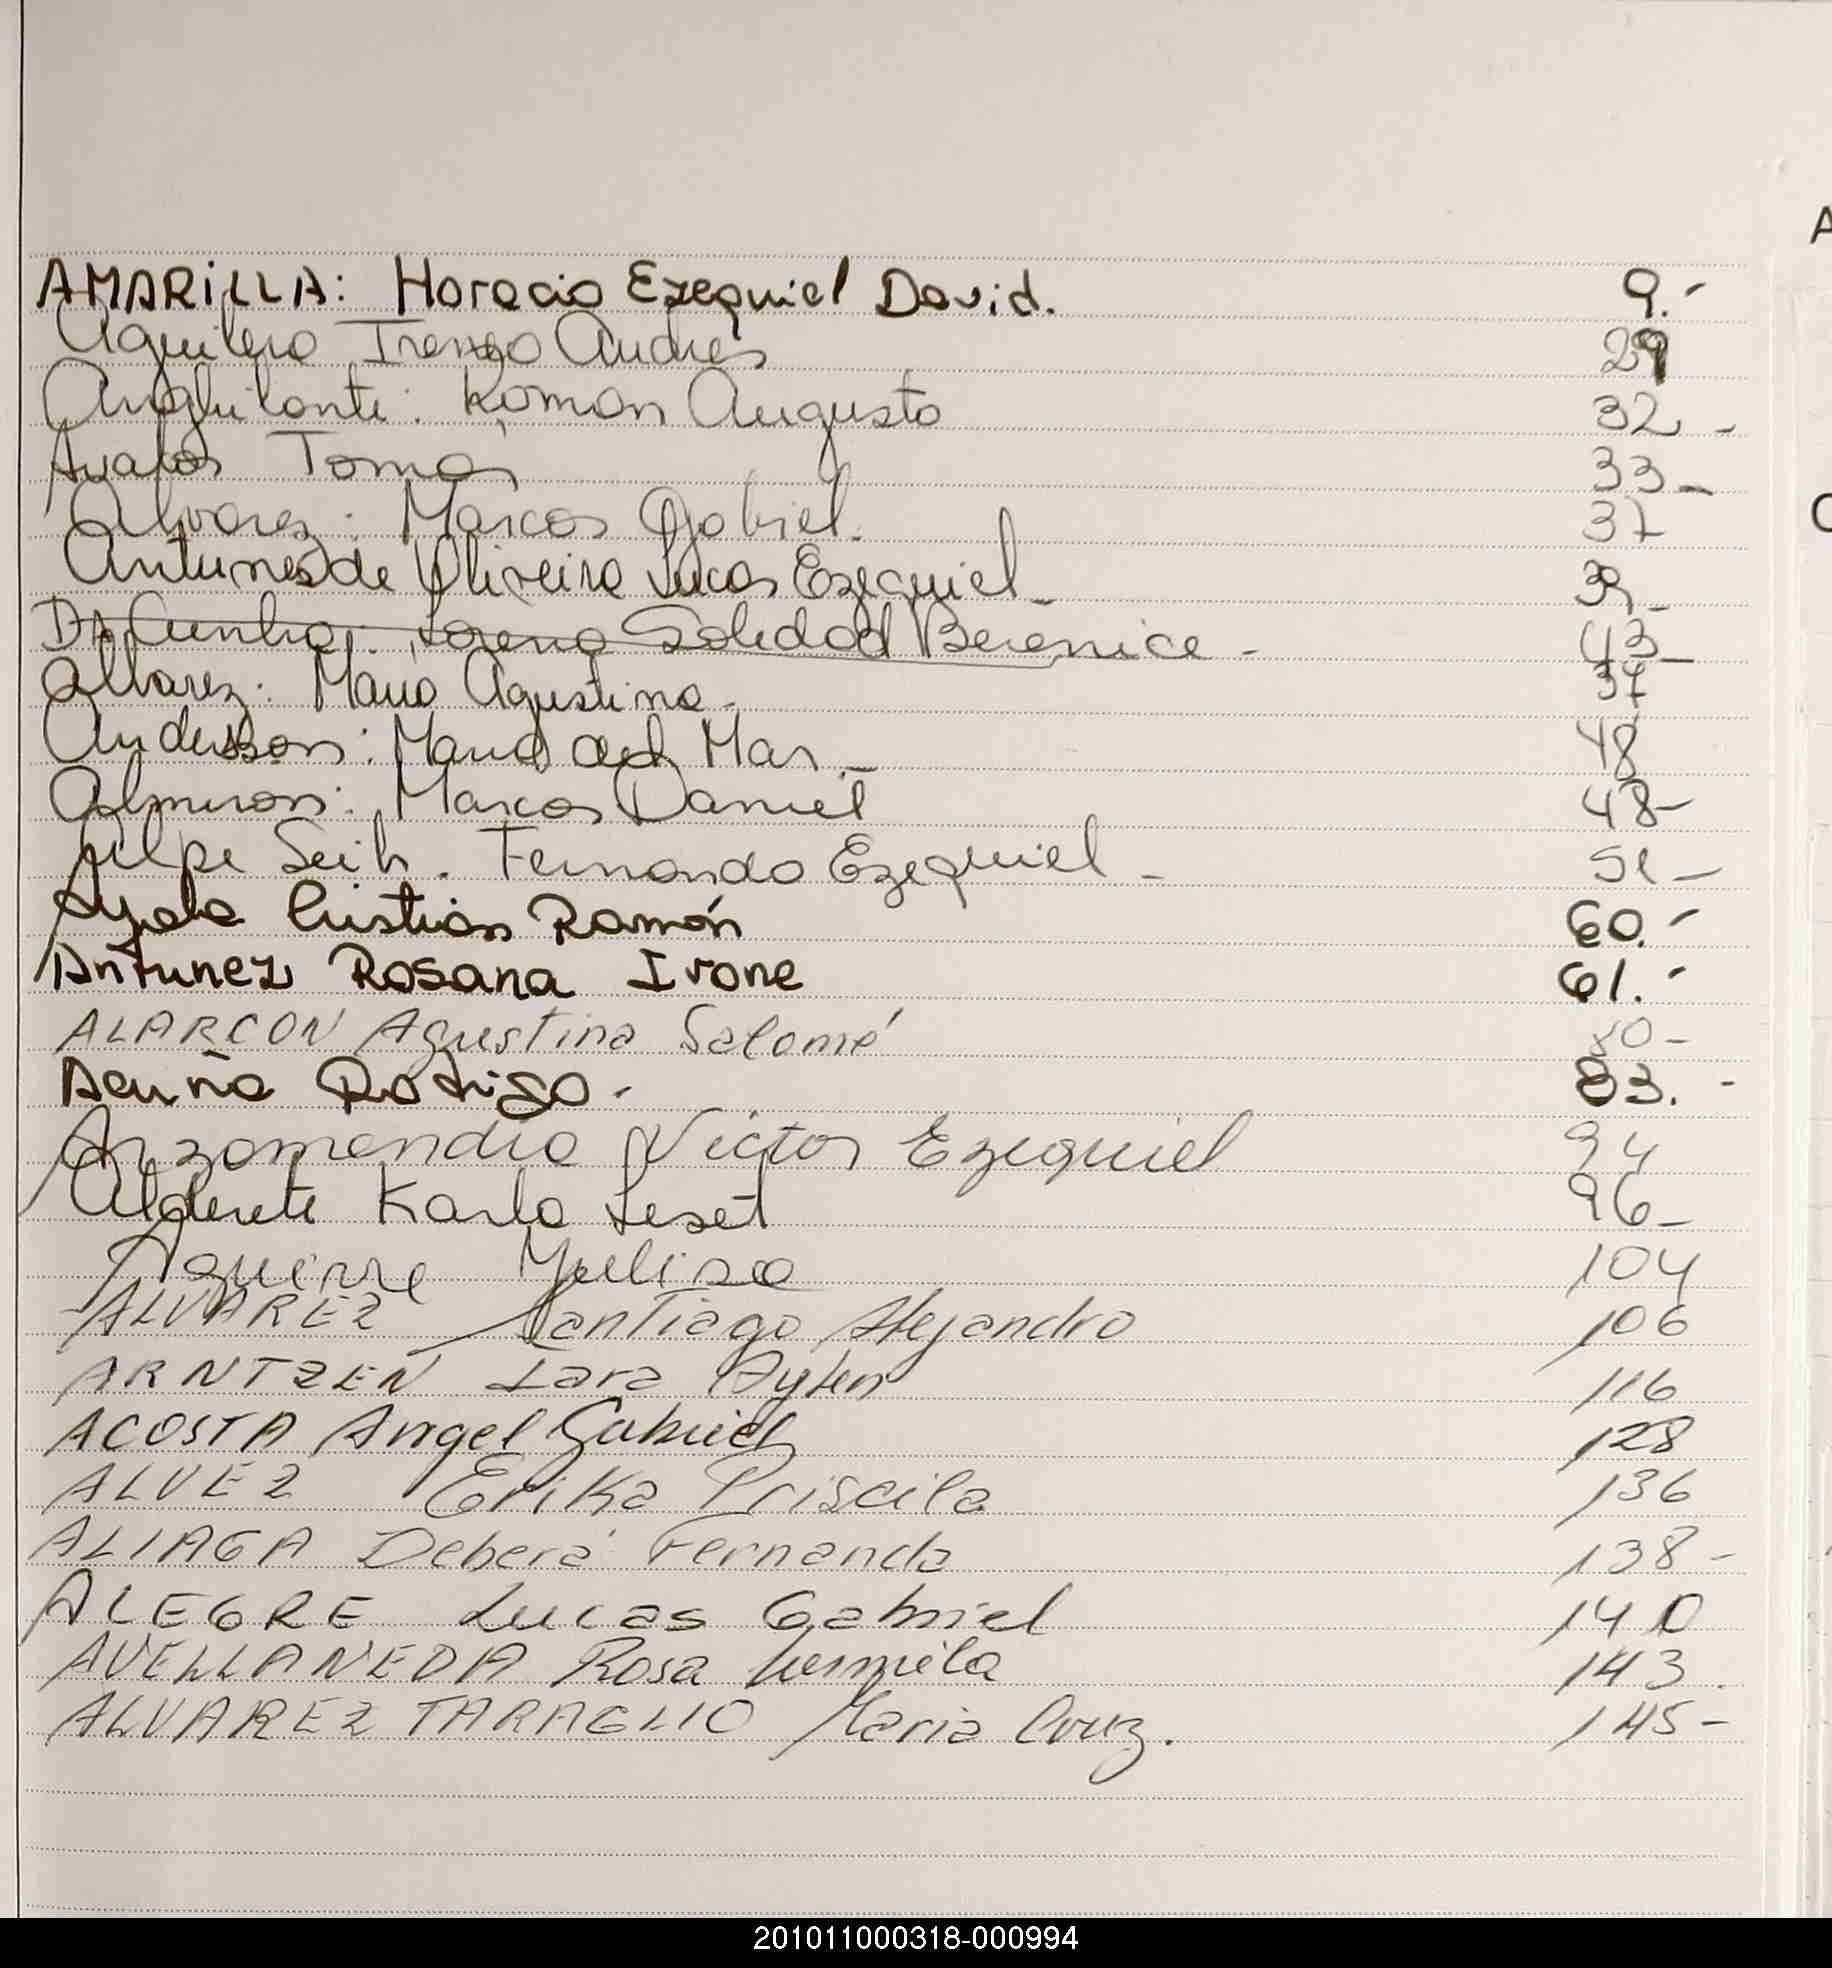 AMARILLA: Horacio Ezequiel David. 9.-
Aguilera Irenzo Andres 29
Anghilante: Roman Augusto 32-
Avalos Tomás 33-
Alvarez: Marcos Gabriel. 37
Antunes de Oliveira Lucas Ezequiel- 39-
Da Cunha: Lorena Soledad Berenice- 43-
Alvarez: Maria Agustina- 37
Andersson: Maria del Mar.- 48
Almiron: Marcos Daniel 48-
Fernando Ezequiel- 51-
Ayala Cristian Ramón 60.-
Antunez Rosana Ivone 61.-
ALARCON Agustina Salomé 80-
Acuña Rodrigo.- 83.-
Arzamendia Victor Ezequiel 94
Alderete Karla Leset 96-
Aguirre Yulisa 104
ALVAREZ Santiago Alejandro 106
ARNTZEN Lara Aylen 116
ACOSTA Angel Gabriel 128
ALVEZ Erika Priscila 136
ALIAGA Debera Fernanda 138-
ALEGRE Lucas Gabriel 140
AVELLANEDA Rosa 143.
ALVAREZ TARAGLIO Maria Cruz. 145-
A
C
201011000318-000994